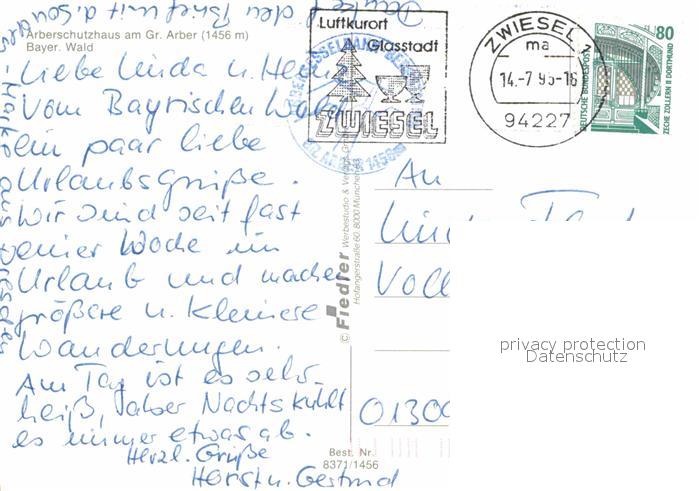 Arberschutzhaus am Gr. Arber (1456 m)
Bayer. Wald
Liebe Linda u. Heinz
Vom Bayrischen Wald
ein paar liebe
Urlaubsgrüße.
Wir sind seit fast
einer Woche im
Urlaub und machen
größere u. kleinere
Wanderungen.
Am Tag ist es sehr
heiß, aber Nachts kühlt
es immer etwas ab.
Herzl. Grüße
Horst u. Gertrud
Luftkurort
Glasstadt
ZWIESEL
ZWIESEL 2
ma
14.-7.95-16
94227
80
DEUTSCHE BUNDESPOST
ZECHE ZOLLERN II DORTMUND
1456m
© Fiedler Werbestudio & Verlags
Hofangerstraße 60, 8000 München
An
Voll
0130
privacy protection
Datenschutz
Best. Nr.
8371/1456